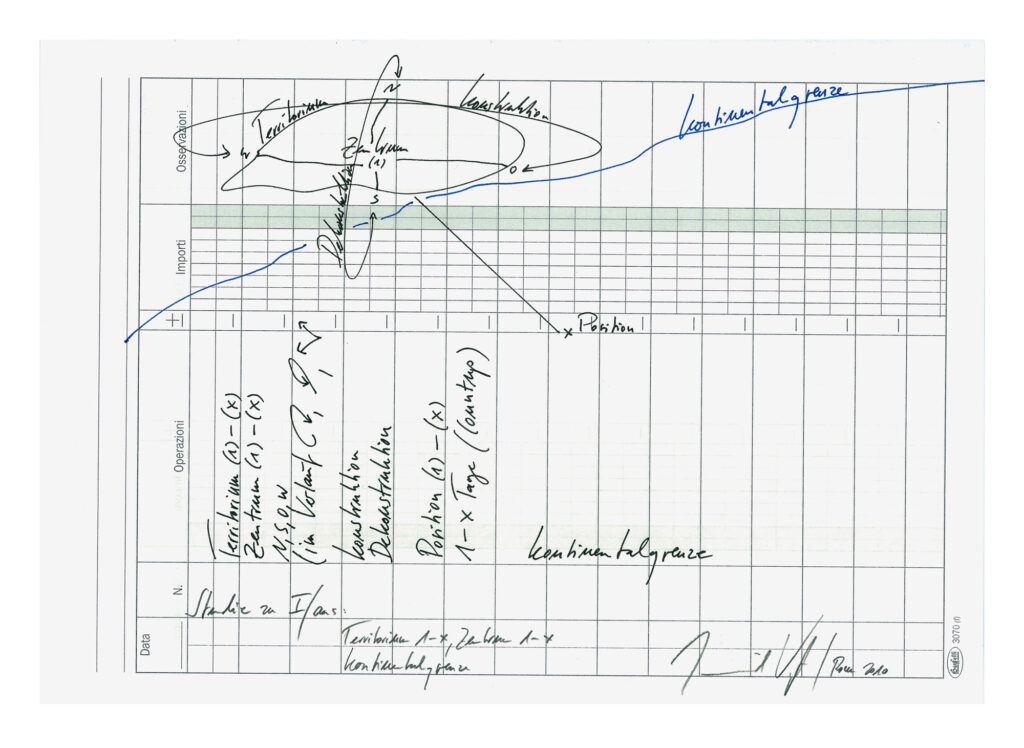 Osservazioni
Territorium
Konstruktion
Kontinentalgrenze
N
W
Zentrum
(1)
O
S
Dekonstruktion
Importi
+
x Position
Operazioni
Territorium (1) – (x)
Zentrum (1) – (x)
N, S, O, W
Konstruktion
Dekonstruktion
Position (1) – (x)
1 – x Tage (Countup)
Kontinentalgrenze
N.
Studie zu I/aus:
Data
Territorium 1–x, Zentrum 1–x
Kontinentalgrenze
2010
3070 (f)